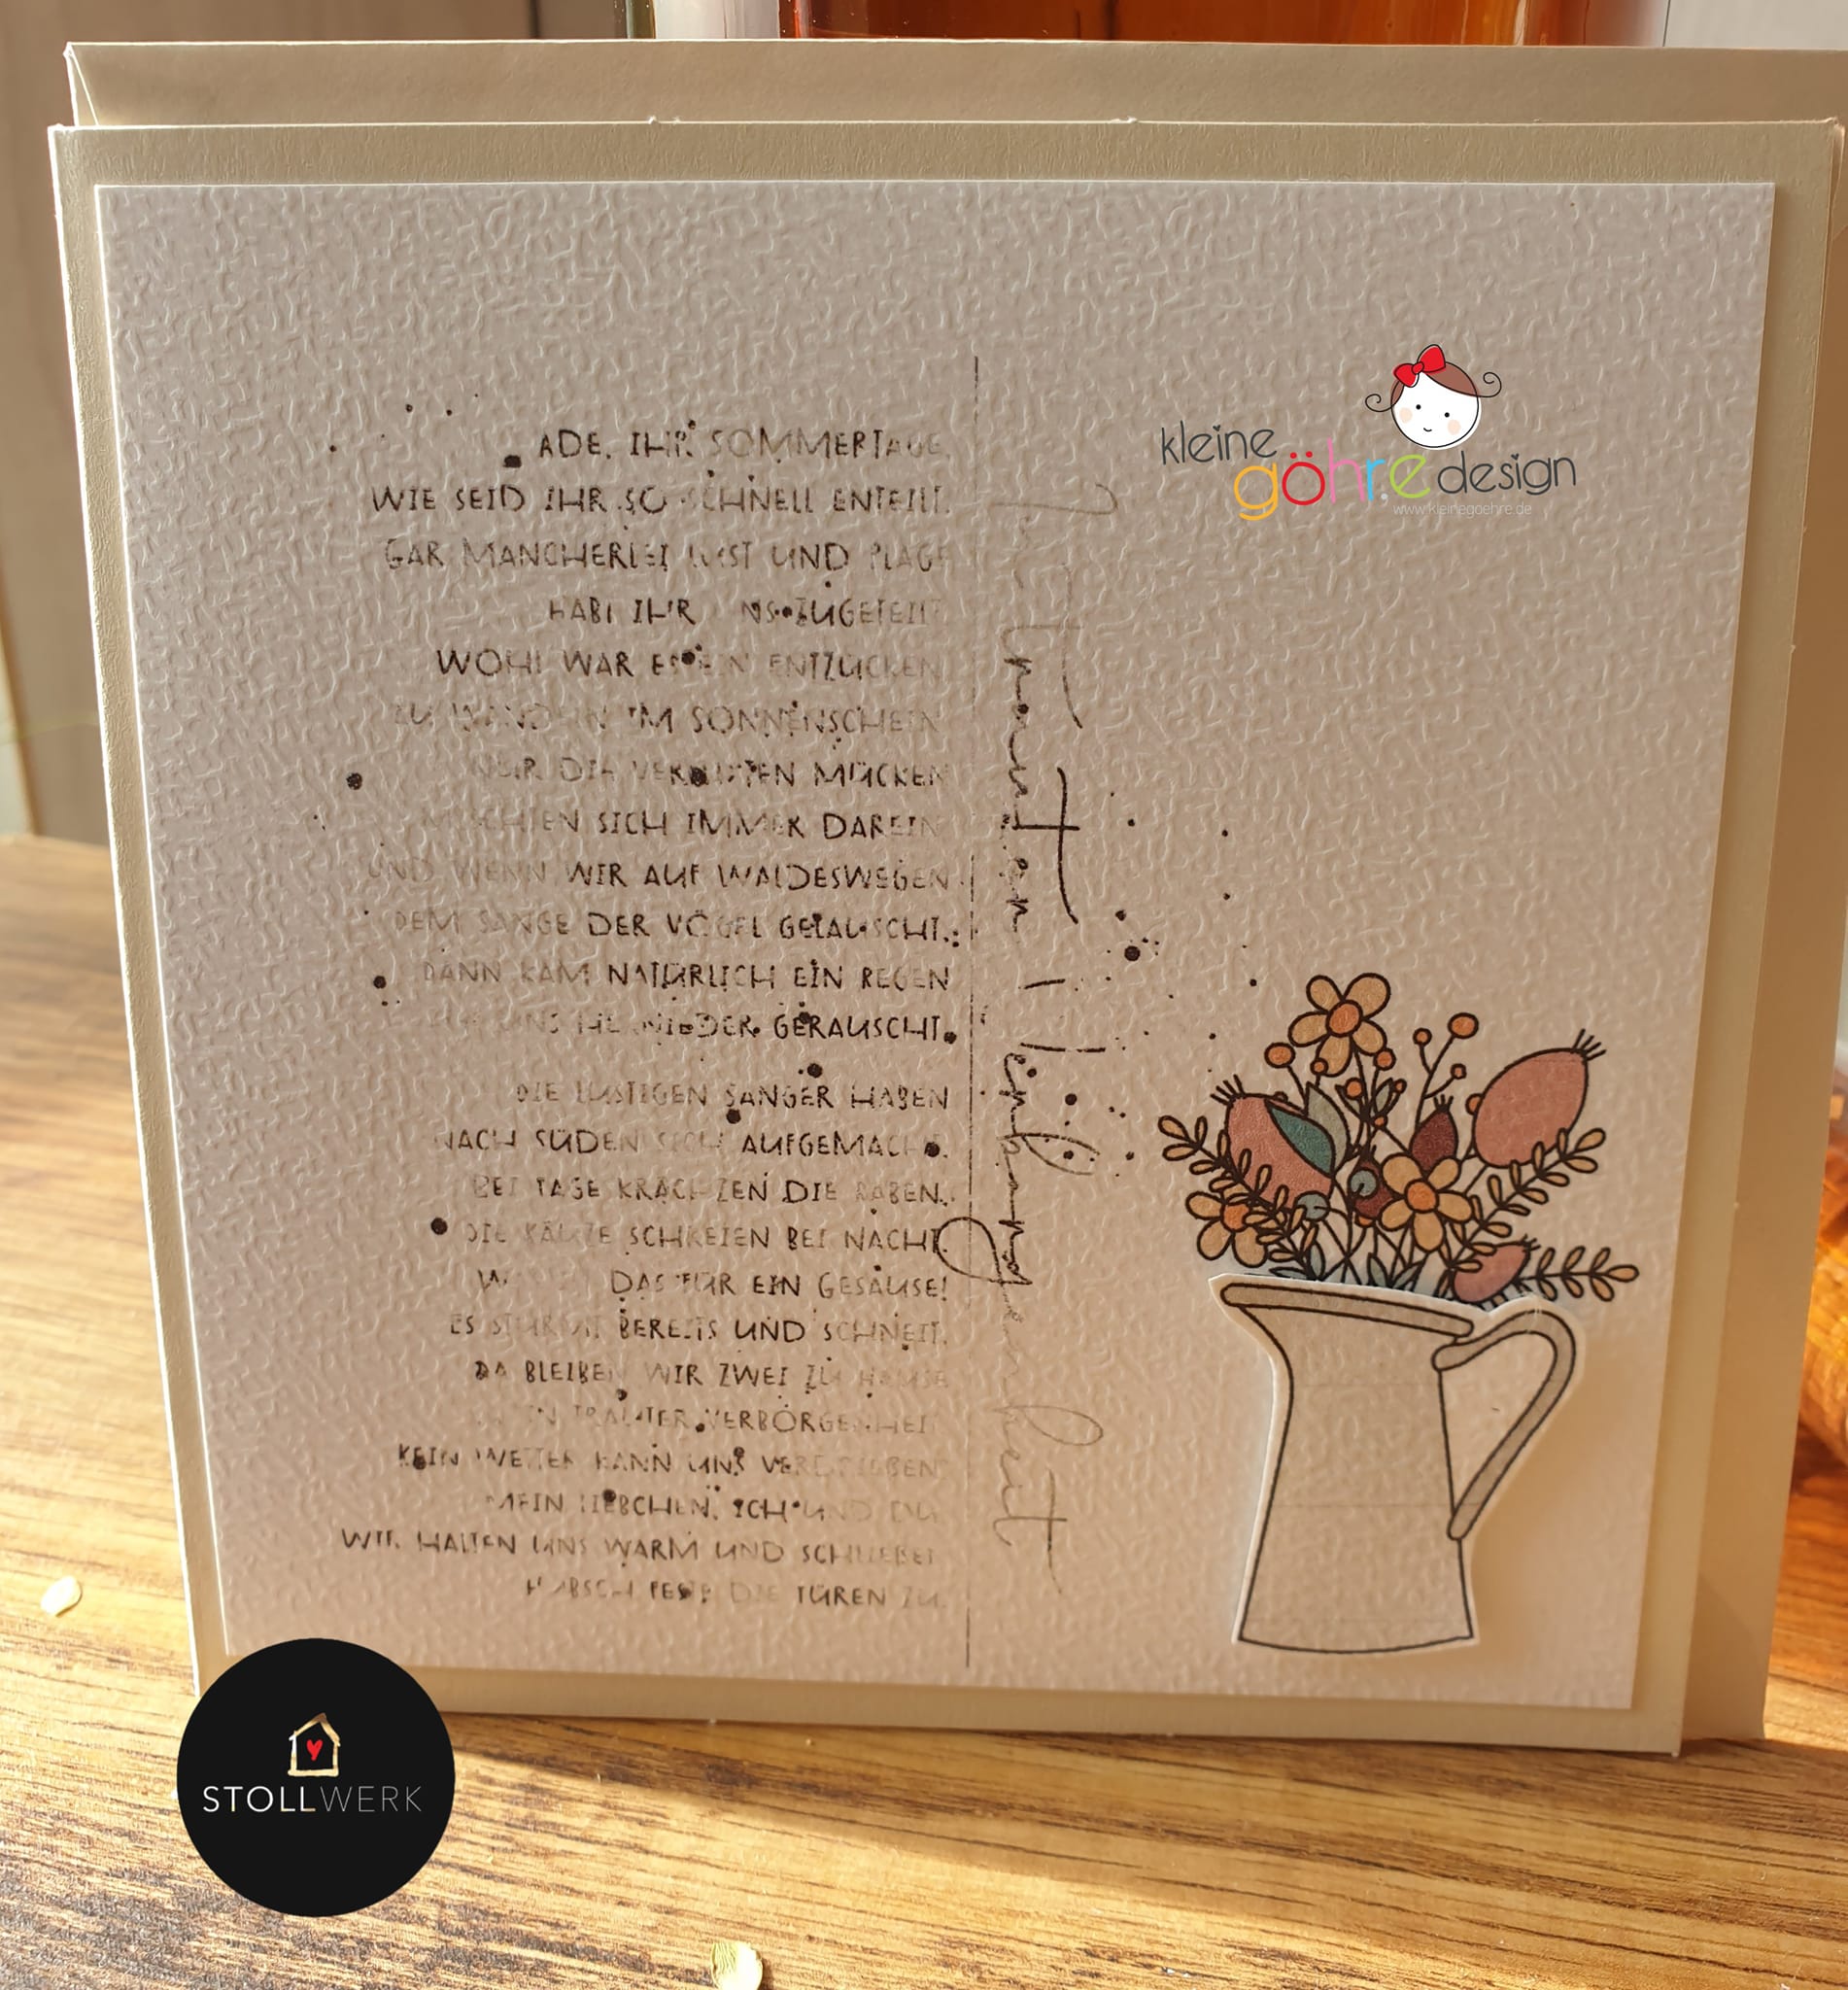 ADE, IHR SOMMERTAGE,
WIE SEID IHR SO SCHNELL ENTEILT.
GAR MANCHERLEI LUST UND PLAGE
HABT IHR UNS ZUGETEILT.
WOHL WAR ES EIN ENTZÜCKEN
ZU WANDELN IM SONNENSCHEIN
NUR DIE VERFLIXTEN MÜCKEN
MISCHTEN SICH IMMER DAREIN
UND WENN WIR AUF WALDESWEGEN
DEM SANGE DER VÖGEL GELAUSCHT,
DANN KAM NATÜRLICH EIN REGEN
UNS HERNIEDER GERAUSCHT.
DIE LUSTIGEN SÄNGER HABEN
NACH SÜDEN SICH AUFGEMACHT.
BEI TAGE KRÄCHZEN DIE RABEN.
DIE KÄUZE SCHREIEN BEI NACHT.
DAS FÜR EIN GESAUSE!
ES STÜRMT BEREITS UND SCHNEIT.
DA BLEIBEN WIR ZWEI ZU HAUSE
IN TRAUTER VERBORGENHEIT
KEIN WETTER KANN UNS VERDRIESSEN
MEIN LIEBCHEN, ICH UND DU
WIR HALTEN UNS WARM UND SCHLIESSEN
HÜBSCH FESTE DIE TÜREN ZU.
In trauter Verborgenheit
kleine
göhre design
www.kleinegoehre.de
STOLLWERK